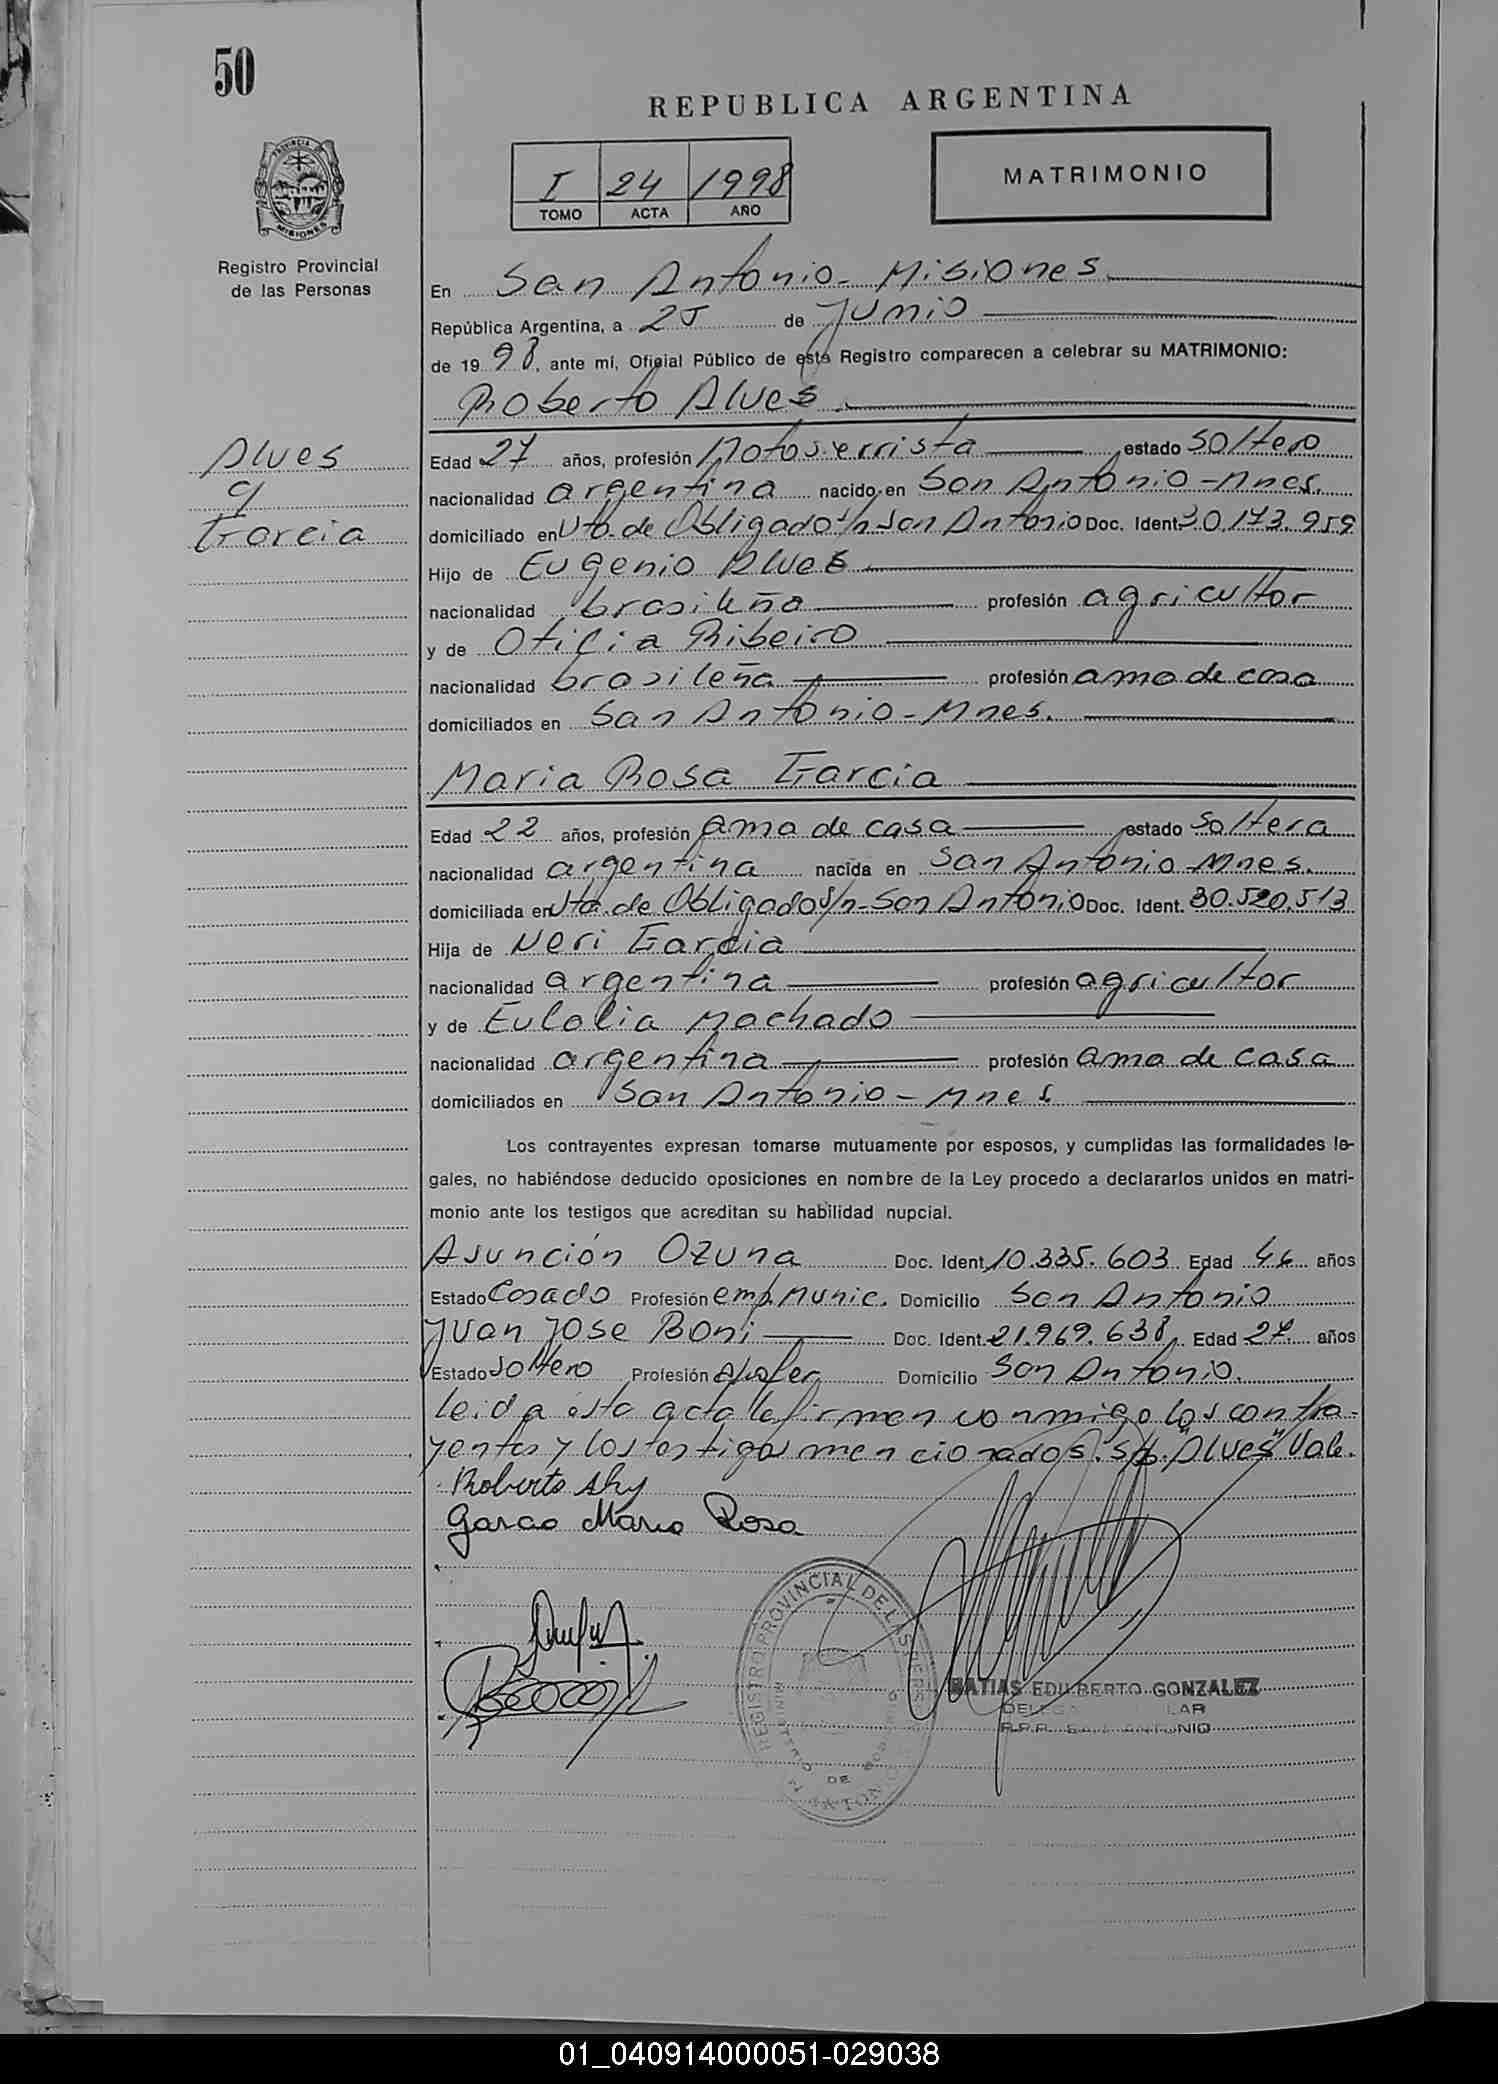 50
REPUBLICA ARGENTINA
I 24 1998
TOMO ACTA AÑO
MATRIMONIO
PROVINCIA DE
MISIONES
Registro Provincial
de las Personas
En San Antonio - Misiones
República Argentina, a 25 de Junio
de 1998, ante mí, Oficial Público de esta Registro comparecen a celebrar su MATRIMONIO:
Roberto Alves
Alves
c/
Garcia
Edad 27 años, profesión Motosierrista estado Soltero
nacionalidad argentina nacido en San Antonio - Mnes.
domiciliado en Vta. de Obligado s/n San Antonio Doc. Ident. 30.173.959
Hijo de Eugenio Alves
nacionalidad brasileña profesión agricultor
y de Otilia Ribeiro
nacionalidad brasileña profesión ama de casa
domiciliados en San Antonio - Mnes.
Maria Rosa Garcia
Edad 22 años, profesión ama de casa estado Soltera
nacionalidad argentina nacida en San Antonio - Mnes.
domiciliada en Vta. de Obligado s/n - San Antonio Doc. Ident. 30.520.513
Hija de Neri Garcia
nacionalidad argentina profesión agricultor
y de Eulalia Machado
nacionalidad argentina profesión ama de casa
domiciliados en San Antonio - Mnes
Los contrayentes expresan tomarse mutuamente por esposos, y cumplidas las formalidades le-
gales, no habiéndose deducido oposiciones en nombre de la Ley procedo a declararlos unidos en matri-
monio ante los testigos que acreditan su habilidad nupcial.
Asunción Ozuna Doc. Ident. 10.335.603 Edad 46 años
Estado Casado Profesión emp. Munic. Domicilio San Antonio
Juan Jose Boni Doc. Ident. 21.969.638 Edad 27 años
Estado Soltero Profesión chofer Domicilio San Antonio.
leida esta acta la firman conmigo los contra-
yentes y los testigos mencionados. S/b. "Alves" Vale.
Roberto
Garcia Maria Rosa
REGISTRO PROVINCIAL DE LAS PERS
MATIAS EDILBERTO GONZALEZ
R.P.P. SAN ANTONIO
01_040914000051-029038